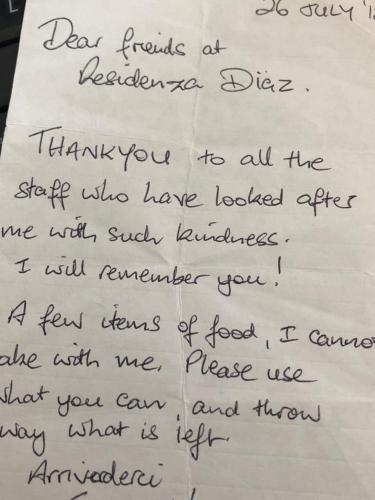 26 JULY '1
Dear friends at
Residenza Diaz.
THANKYOU to all the
staff who have looked after
me with such kindness.
I will remember you!
A few items of food, I canno
ake with me. Please use
what you can, and throw
way what is left.
Arrivaderci